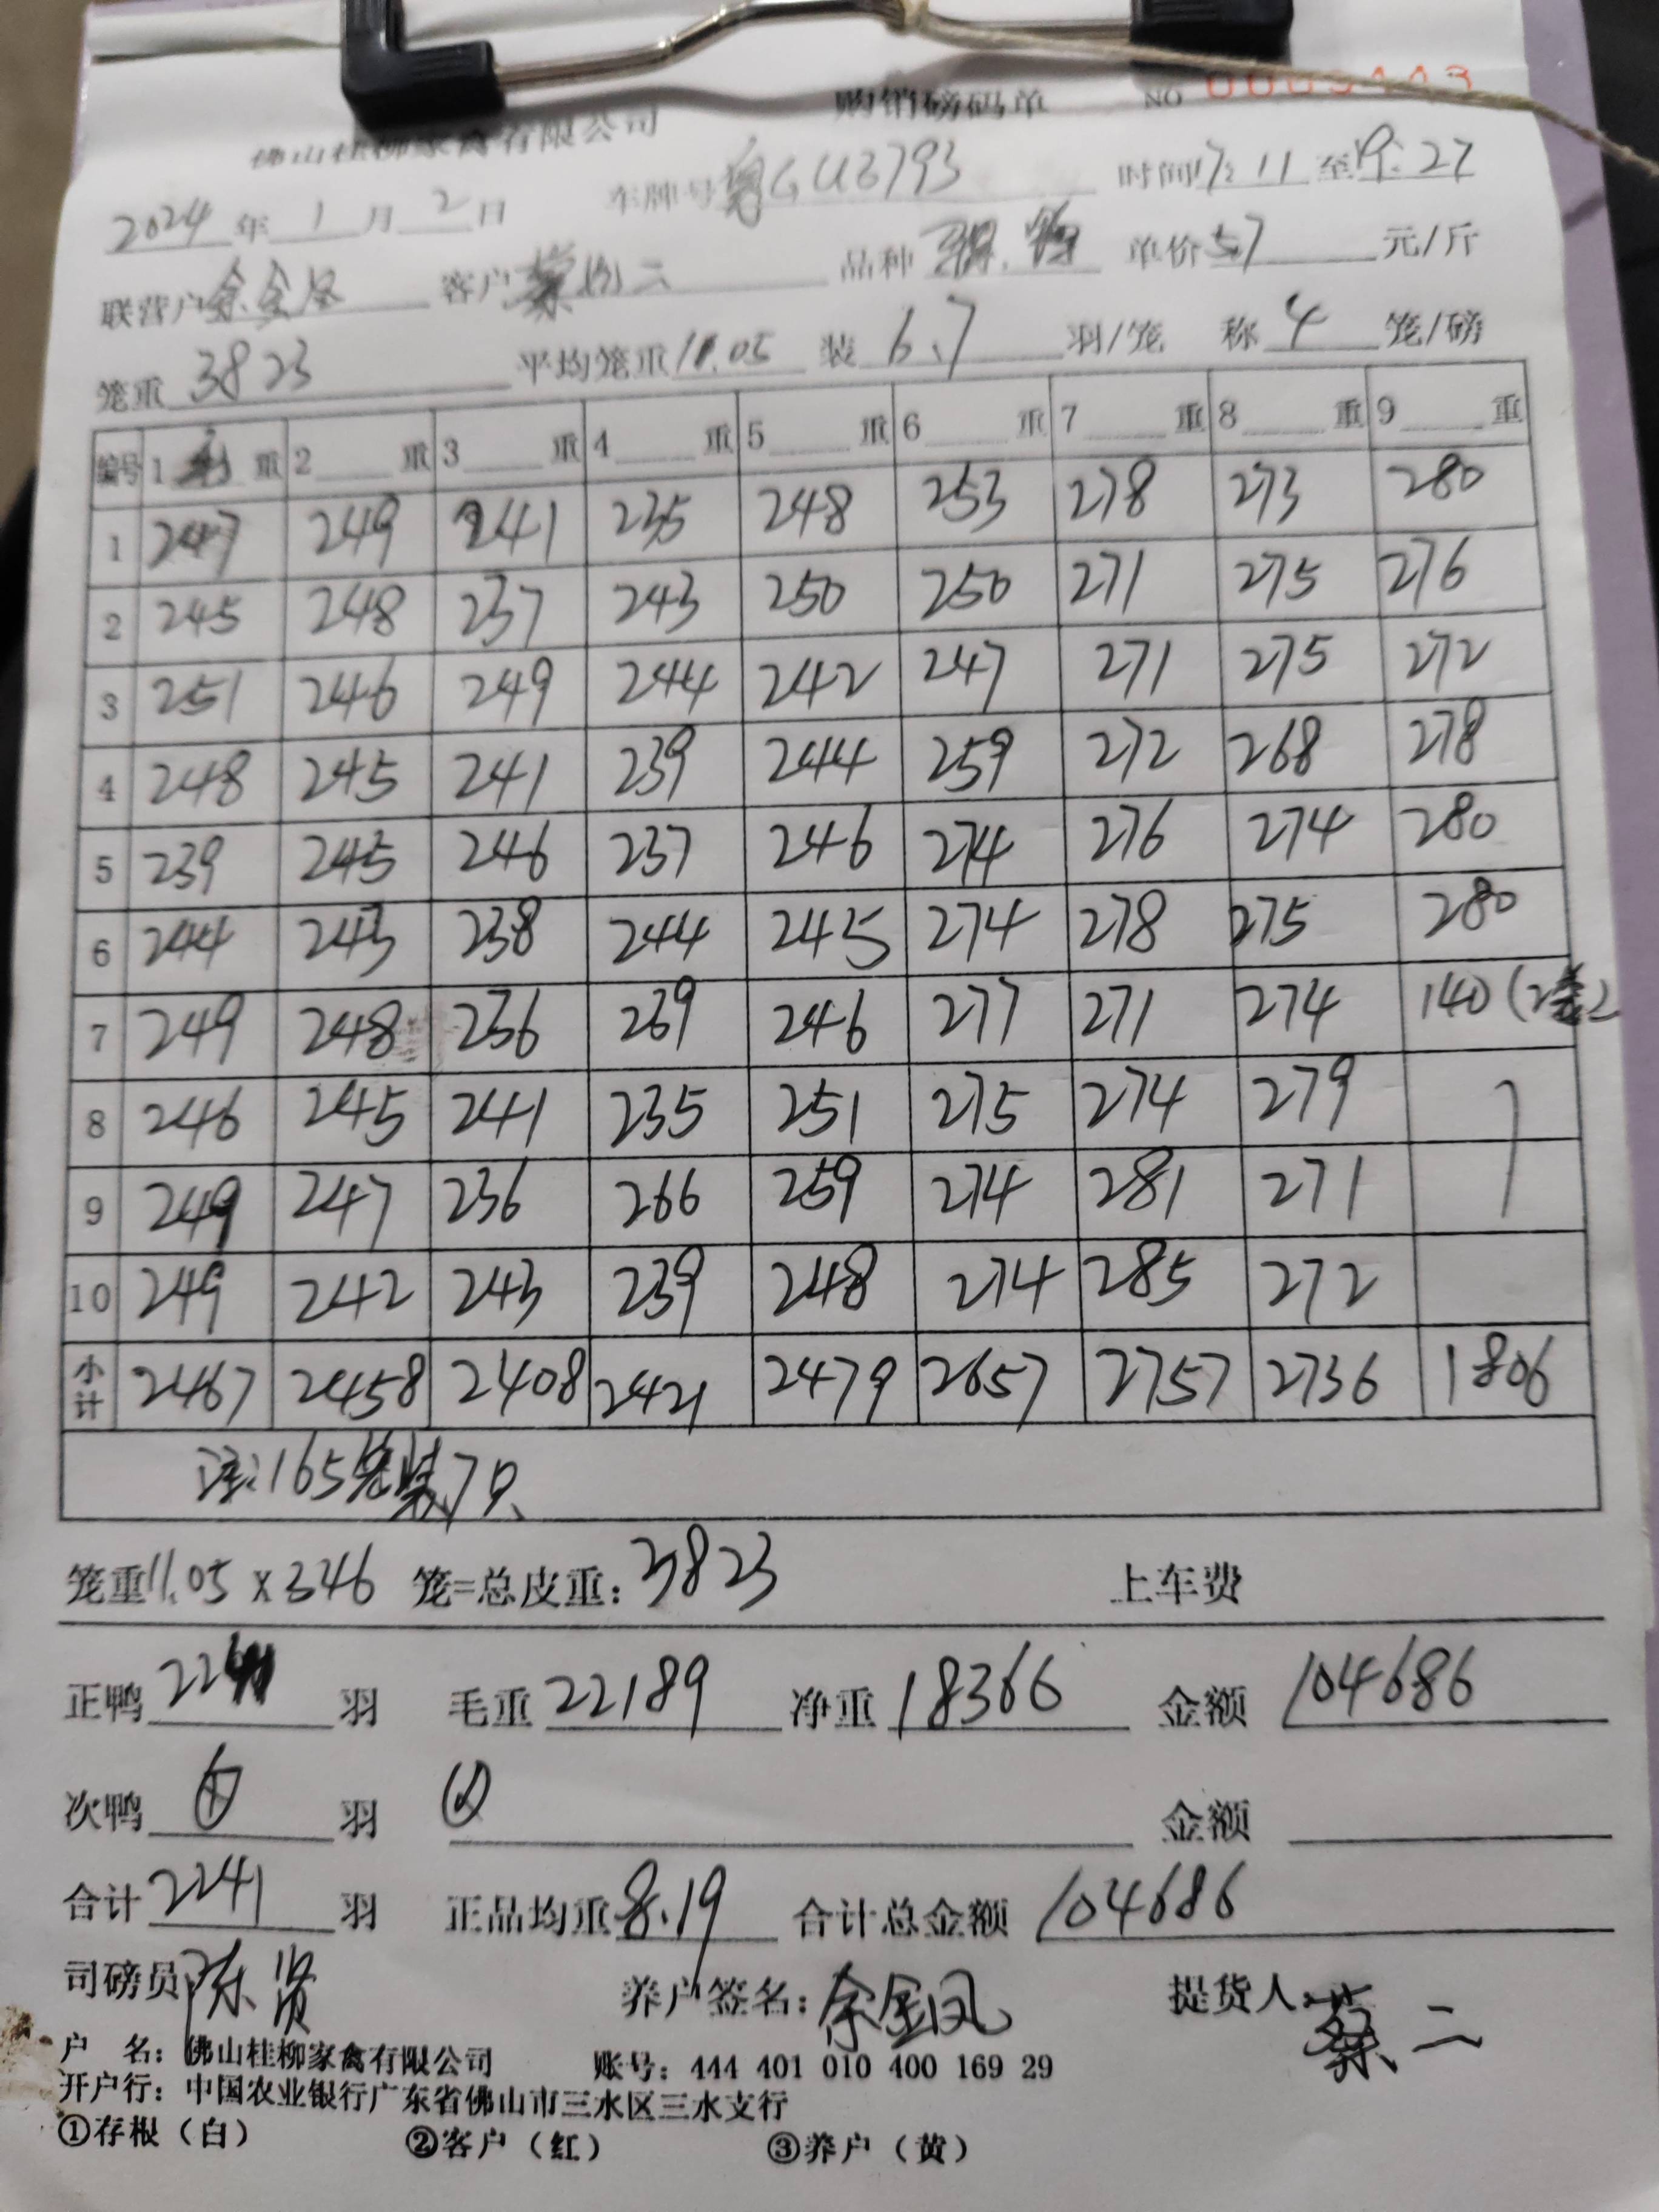 购销磅码单 NO 0009443
佛山桂柳家禽有限公司
2024年1月2日 车牌号粤GU3793 时间17:11至19:27
联营户余金凤 客户蔡二 品种 单价5.7元/斤
笼重3823 平均笼重11.05 装6.7羽/笼 称4笼/磅
编号 1 重 2 重 3 重 4 重 5 重 6 重 7 重 8 重 9 重
1 247 249 241 235 248 253 278 273 280
2 245 248 237 243 250 250 271 275 276
3 251 246 249 244 242 247 271 275 272
4 248 245 241 239 244 259 272 268 278
5 239 245 246 237 246 274 276 274 280
6 244 243 238 244 245 274 278 275 280
7 249 248 236 239 246 277 271 274 140(2笼)
8 246 245 241 235 251 275 274 279
9 249 247 236 266 259 274 281 271
10 249 242 243 239 248 274 285 272
小计 2467 2458 2408 2421 2479 2657 2757 2736 1806
注:165笼装7只
笼重11.05×346 笼=总皮重:3823 上车费
正鸭2241羽 毛重22189 净重18366 金额104686
次鸭 羽 金额
合计2241羽 正品均重8.19 合计总金额104686
司磅员陈贤 养户签名:余金凤 提货人:蔡二
户 名:佛山桂柳家禽有限公司 账号:444 401 010 400 169 29
开户行:中国农业银行广东省佛山市三水区三水支行
①存根(白) ②客户(红) ③养户(黄)